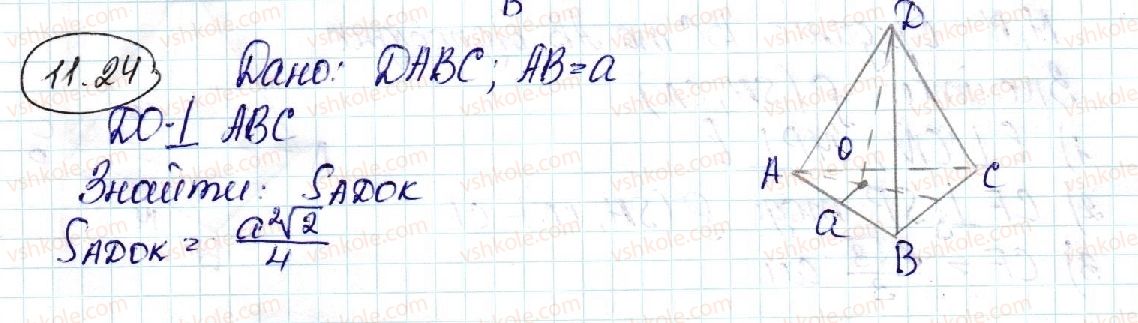 B
11.24 Дано: DABC; AB=a
DO⊥ ABC
Знайти: S_ADOK
S_ADOK = a²√2/4
D
O
A
C
a
B
vshkole.com